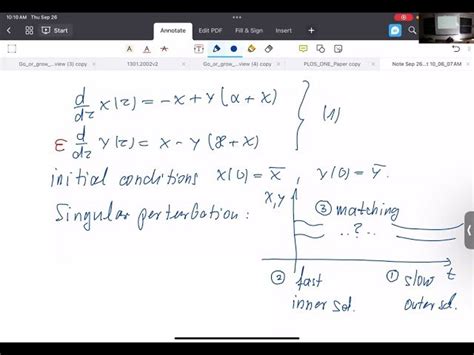 10:10 AM Thu Sep 26
76%
Start
Annotate
Edit PDF
Fill & Sign
Insert
Go_or_grow_...view (3) copy
1301.2002v2
Go_or_grow_...view (4) copy
PLOS_ONE_Paper copy
Note Sep 26...t 10_06_07AM
d/dτ x(τ) = -x + y(α + x)
ε d/dτ y(τ) = x - y(æ + x)
(1)
initial conditions x(0) = x̄ , y(0) = ȳ.
Singular perturbation:
x,y
③ matching
..?..
② fast
inner sol.
① slow
outer sol.
t